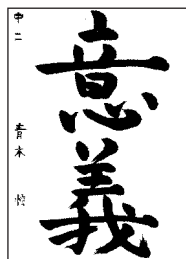 意義
中二 青木